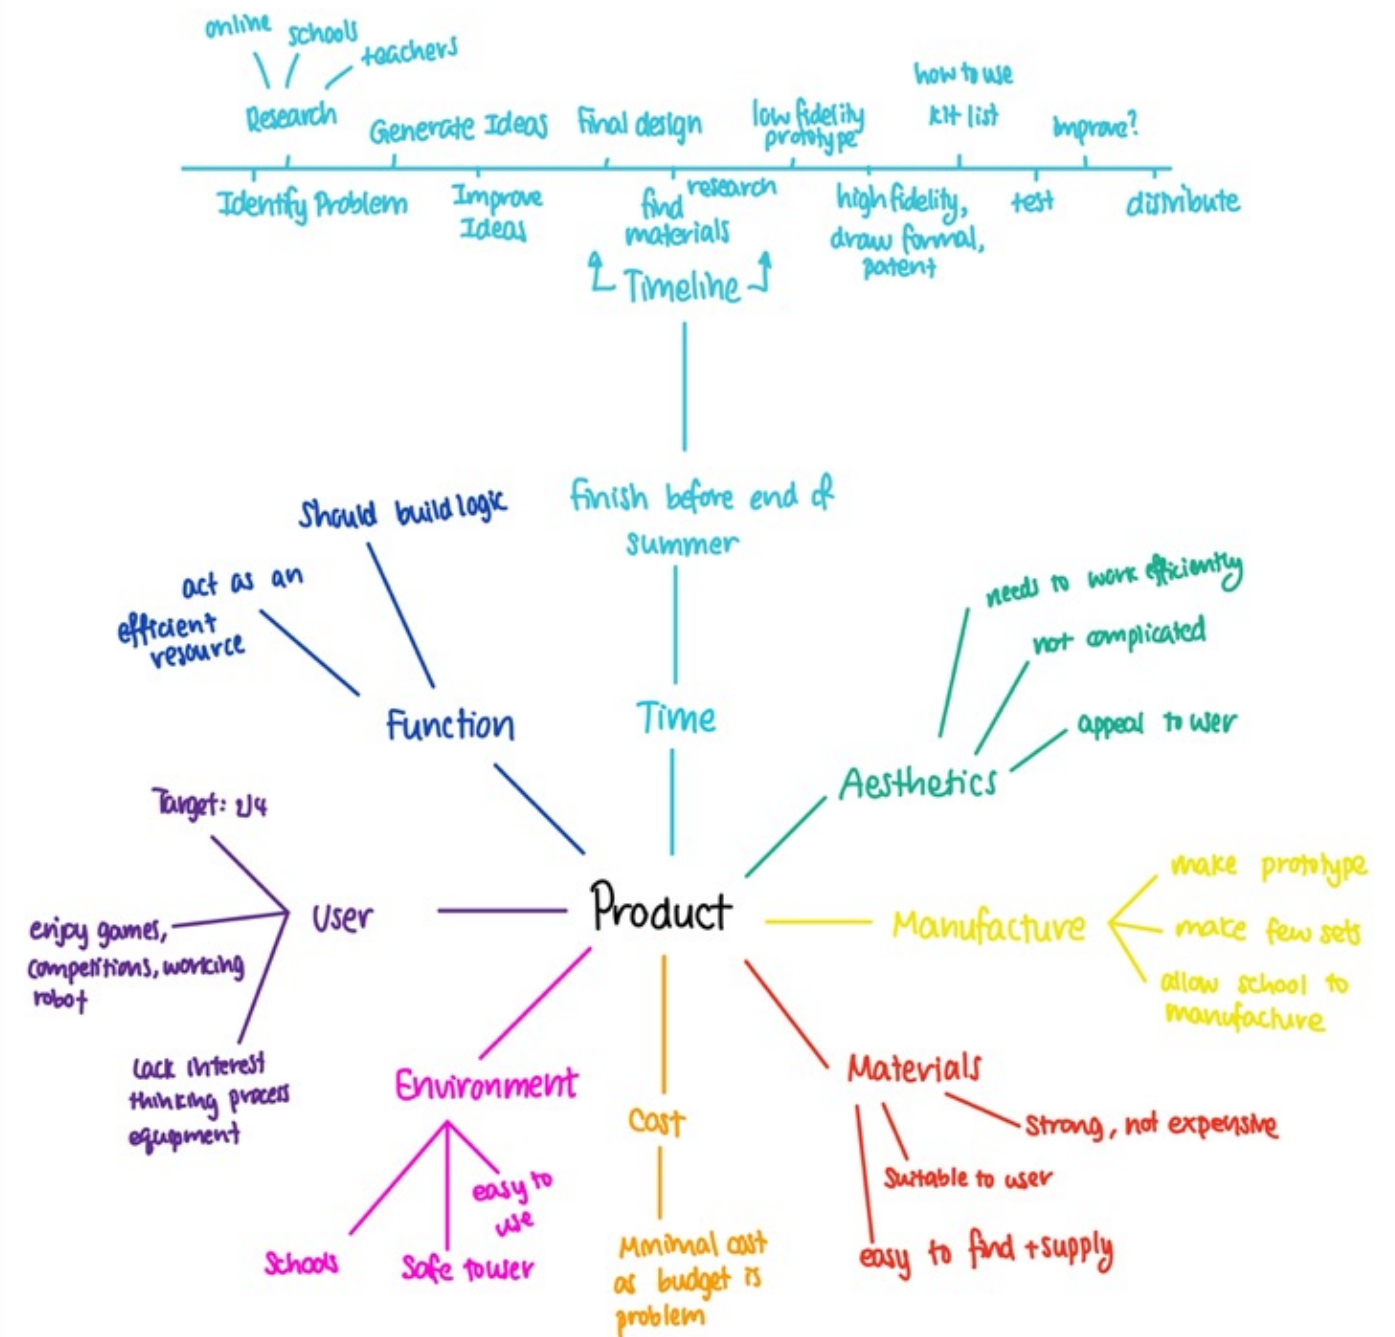 online
schools
teachers
Research
Generate Ideas
Final design
low fidelity
prototype
how to use
kit list
Improve?
Identify Problem
Improve
Ideas
find
materials
research
high fidelity,
draw formal,
patent
test
distribute
Timeline
finish before end of
summer
Time
Should build logic
act as an
efficient
resource
Function
needs to work efficiently
not complicated
appeal to user
Aesthetics
Target:
User
enjoy games,
competitions, working
robot
Lack interest
thinking process
equipment
Product
Manufacture
make prototype
make few sets
allow school to
manufacture
Environment
Schools
Safe to user
easy to
use
Cost
Minimal cost
as budget is
problem
Materials
Strong, not expensive
Suitable to user
easy to find + supply